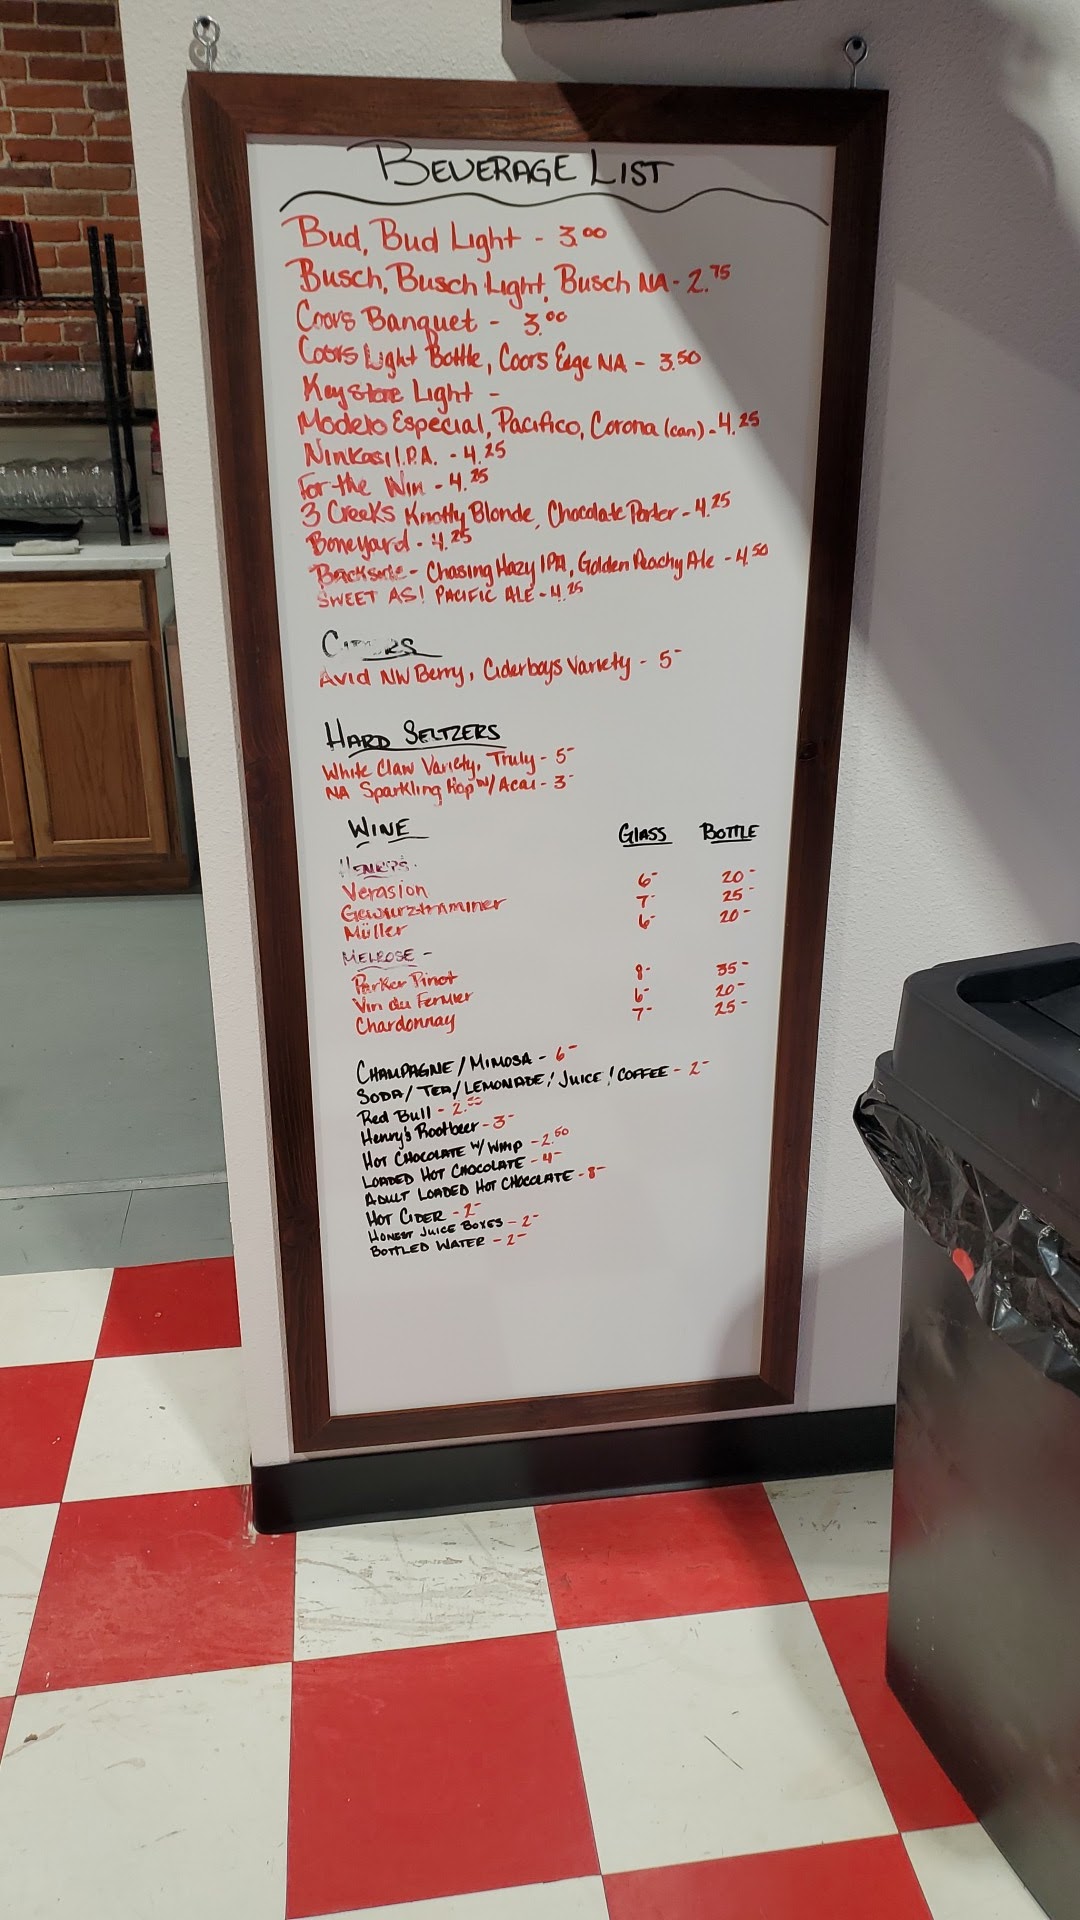 BEVERAGE LIST
Bud, Bud Light - 3.00
Busch, Busch Light, Busch NA - 2.75
Coors Banquet - 3.00
Coors Light Bottle, Coors Edge NA - 3.50
Keystone Light -
Modelo Especial, Pacifico, Corona (can) - 4.25
Ninkasi I.P.A. - 4.25
For the Win - 4.25
3 Creeks Knotty Blonde, Chocolate Porter - 4.25
Boneyard - 4.25
Backside - Chasing Hazy IPA, Golden Peachy Ale - 4.50
SWEET AS! PACIFIC ALE - 4.25
CIDERS
Avid NW Berry, Ciderboys Variety - 5-
HARD SELTZERS
White Claw Variety, Truly - 5-
NA Sparkling Hop w/ Acai - 3-
WINE GLASS BOTTLE
Verasion 6- 20-
Gewurztraminer 7- 25-
Müller 6- 20-
MELROSE -
Parker Pinot 8- 35-
Vin du Fermier 6- 20-
Chardonnay 7- 25-
CHAMPAGNE / MIMOSA - 6-
SODA / TEA / LEMONADE / JUICE / COFFEE - 2-
Red Bull - 2.50
Henry's Rootbeer - 3-
HOT CHOCOLATE W/ WHIP - 2.50
LOADED HOT CHOCOLATE - 4-
ADULT LOADED HOT CHOCOLATE - 8-
HOT CIDER - 2-
HONEST JUICE BOXES - 2-
BOTTLED WATER - 2-